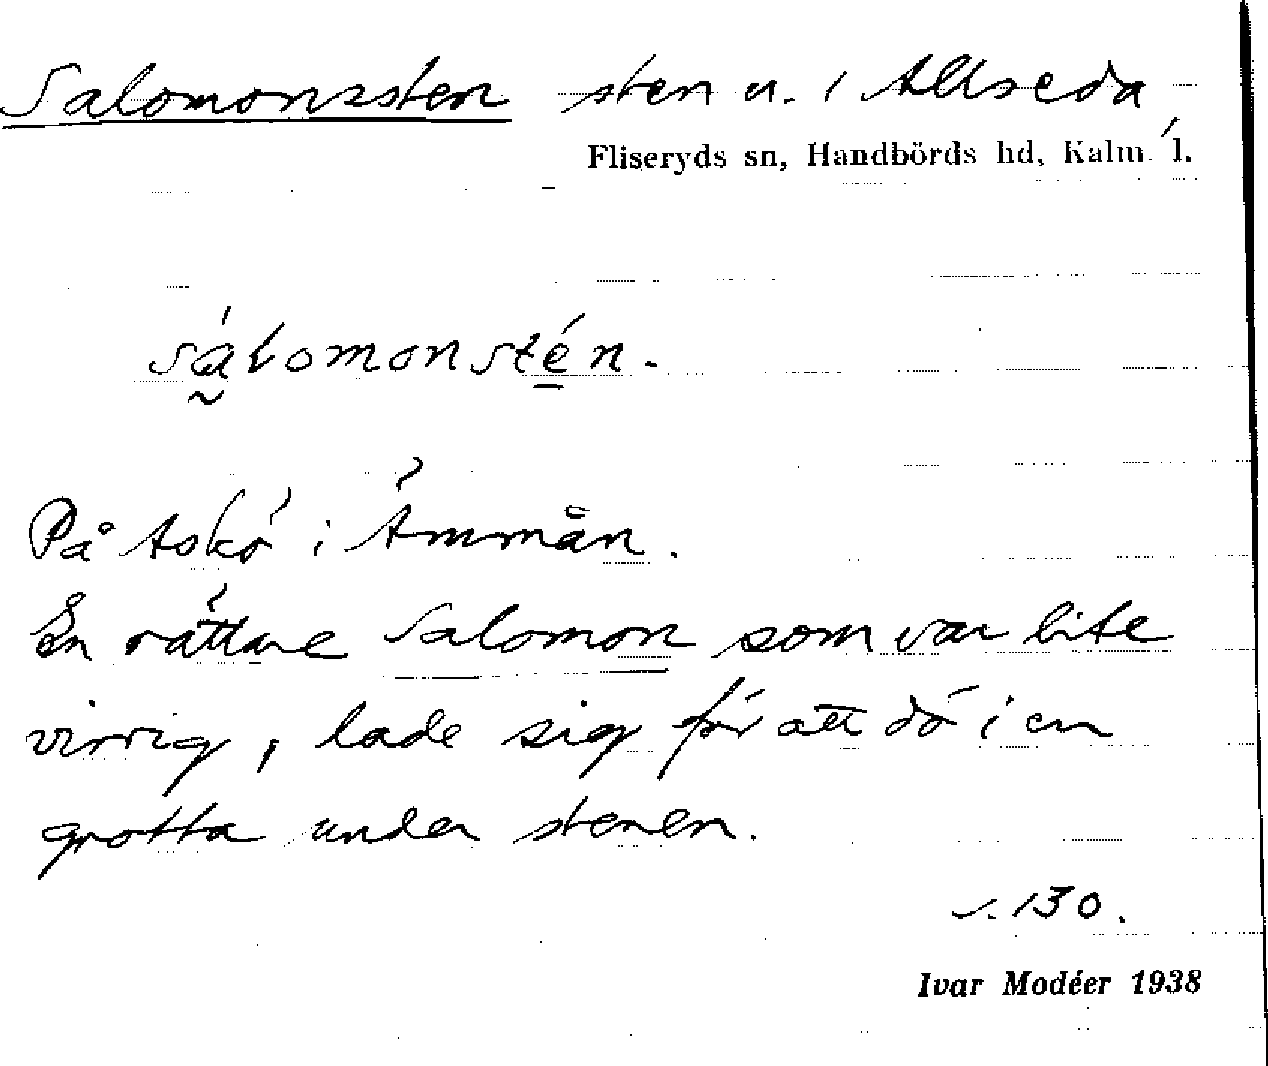 Salomonssten sten u. i Allseda,
Fliseryds sn, Handbörds hd, Kalm. l.
sálomonstén.
På Askö i Ämmån.
En rättare Salomon som var lite
virrig, lade sig för att dö i en
grotta under stenen.
s. 130.
Ivar Modéer 1938